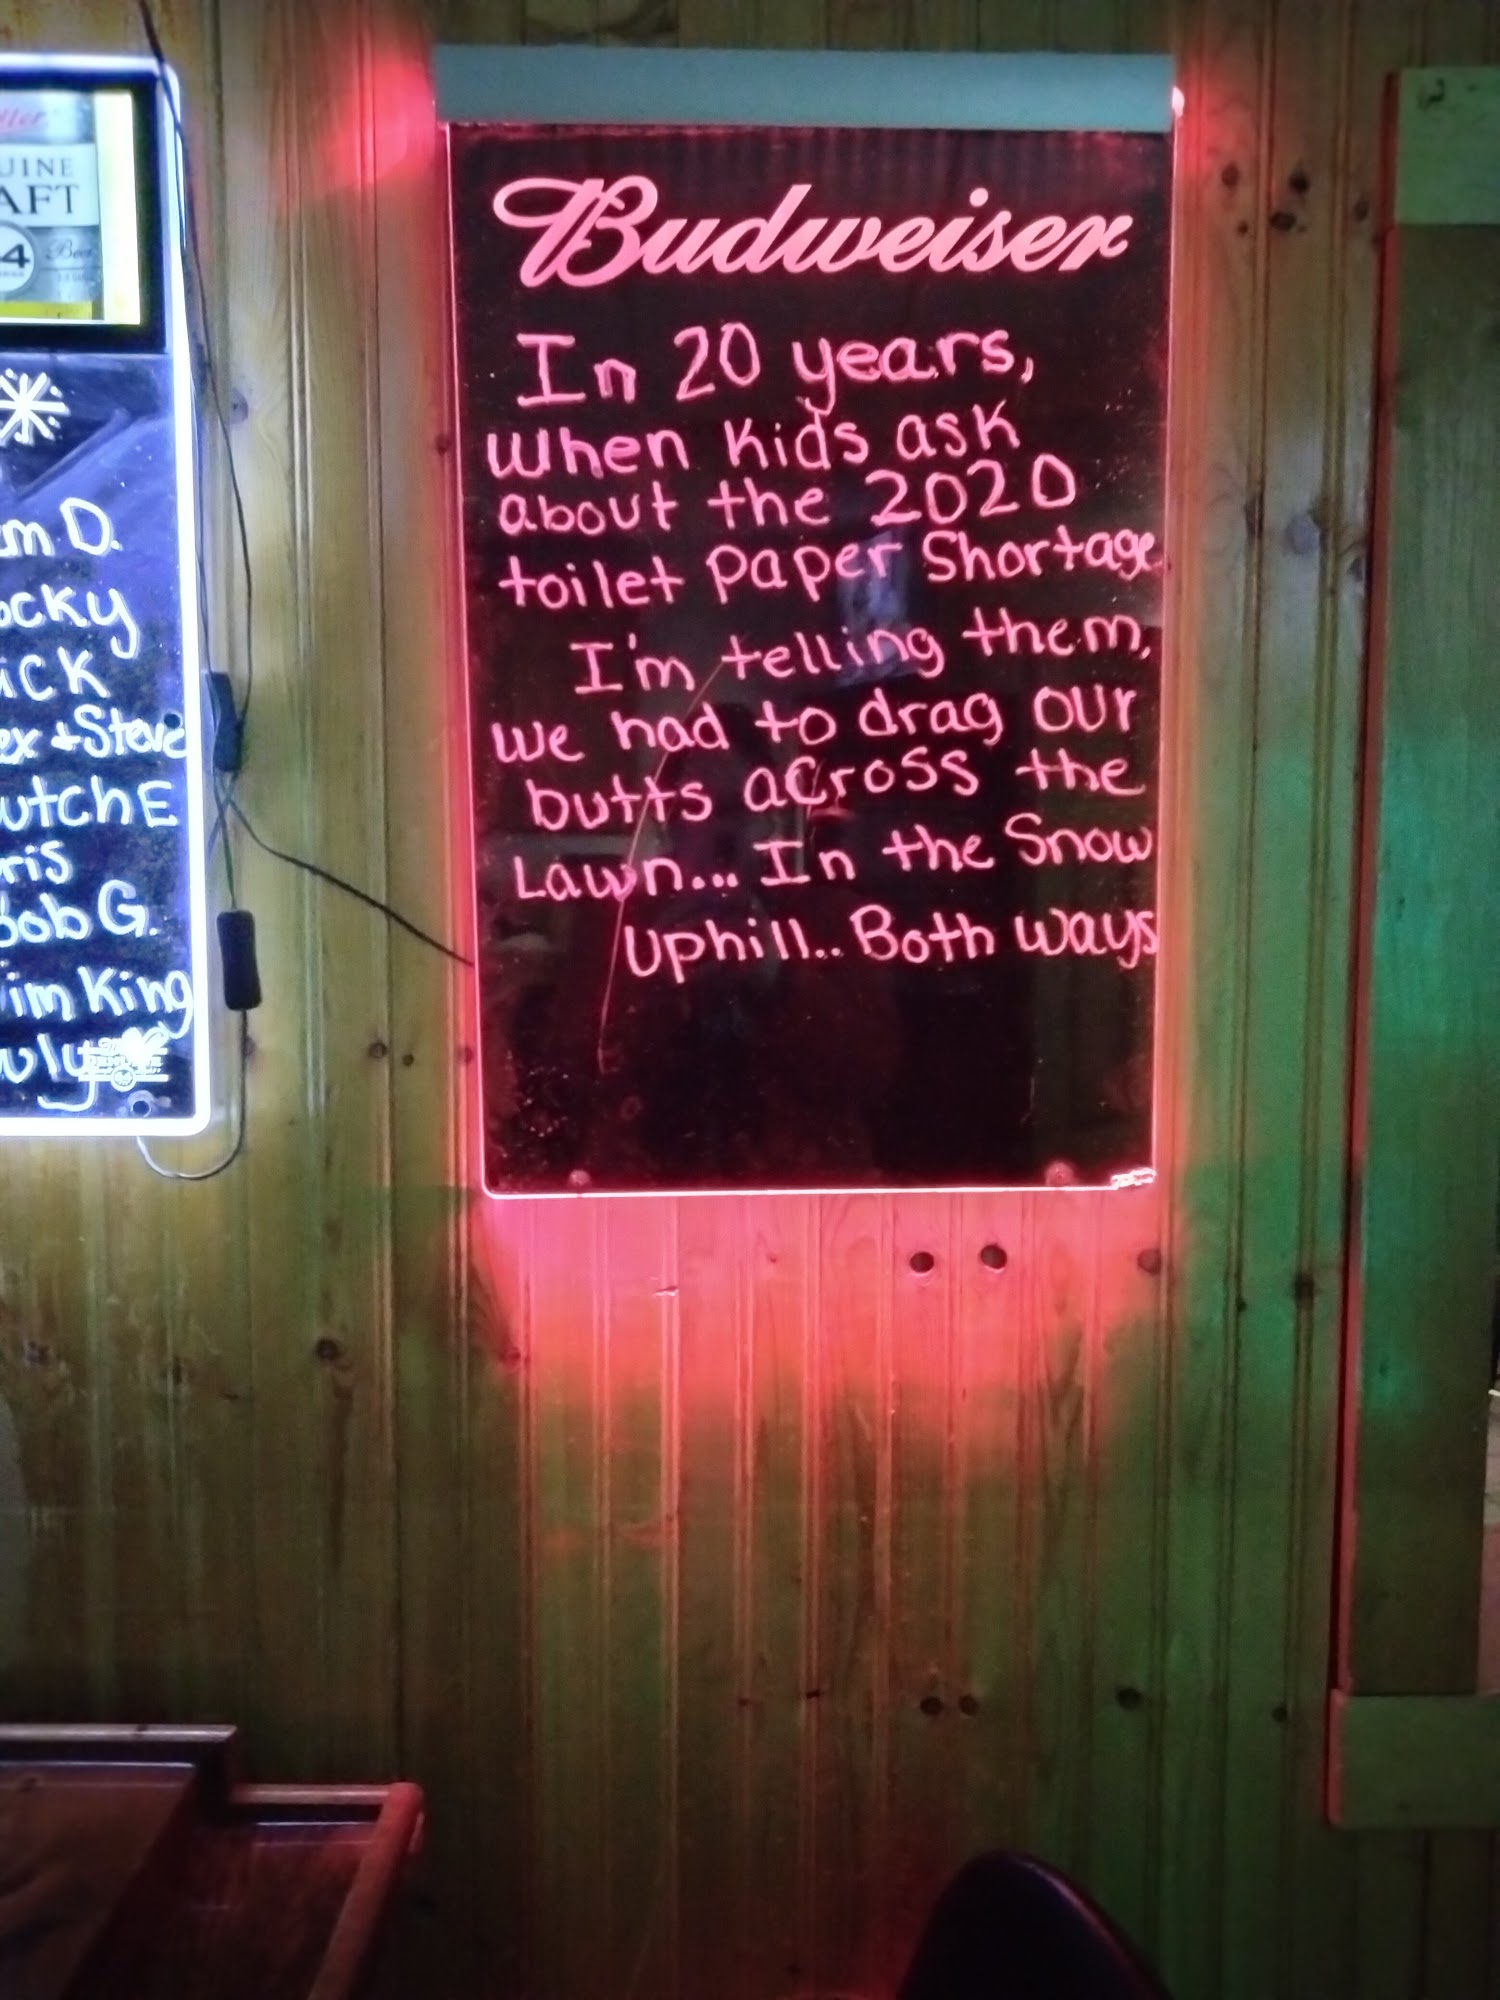 UINE
AFT
Beer
D.
ocky
ick
+Steve
utch E
ris
Bob G.
Jim King
Budweiser
In 20 years,
when kids ask
about the 2020
toilet paper Shortage
I'm telling them,
we had to drag our
butts across the
Lawn... In the Snow
uphill.. Both ways